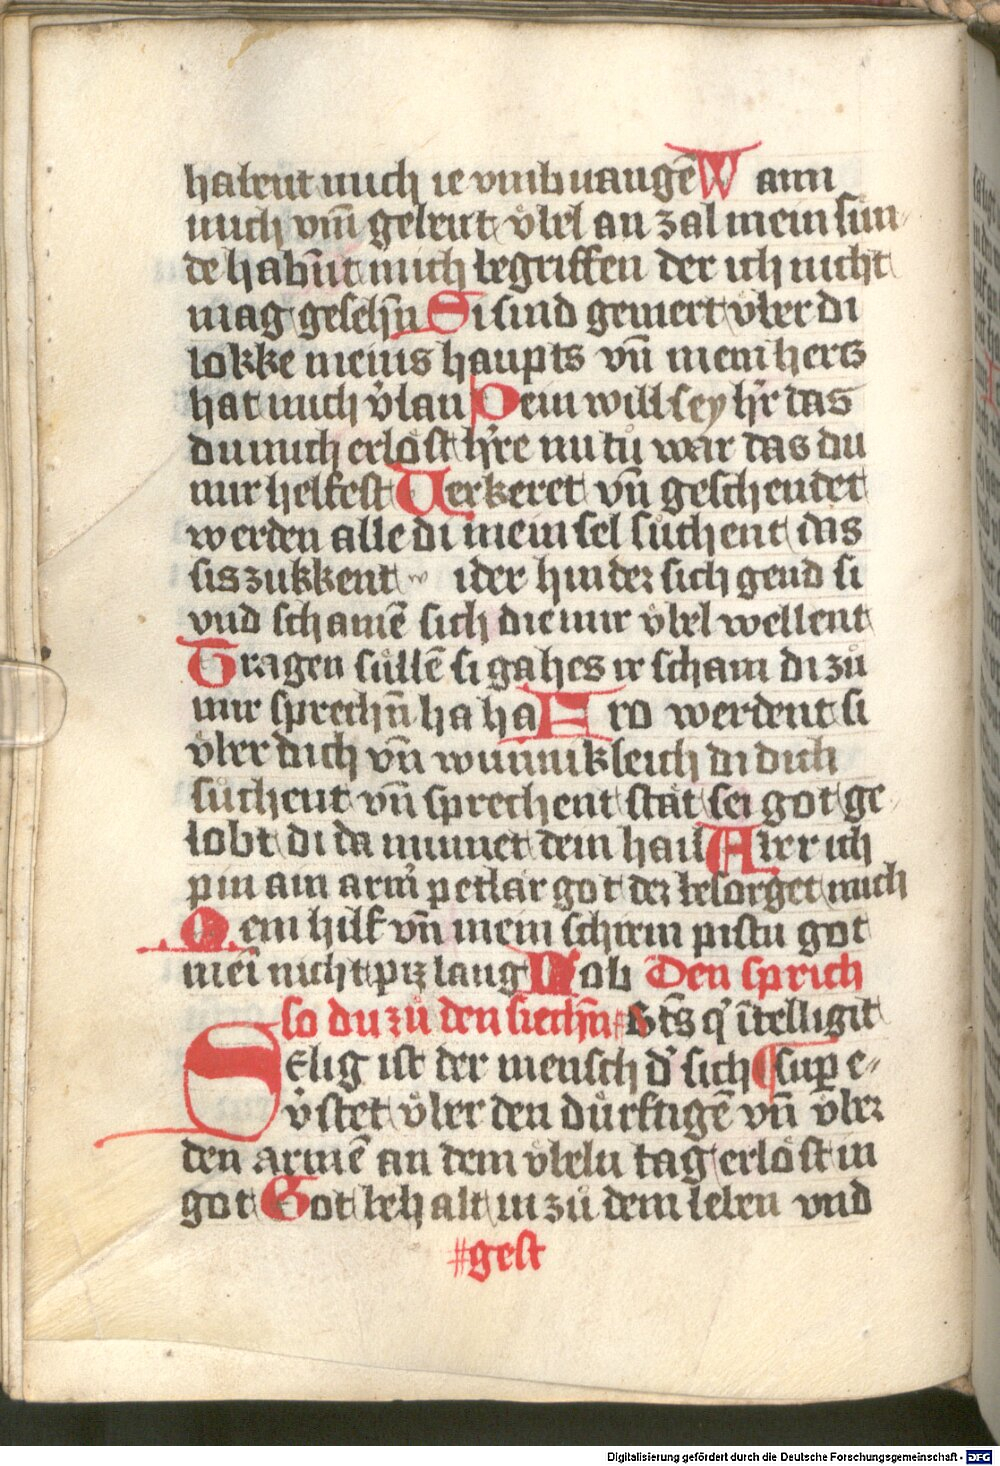 habent mich ie vmbuangē Wann
mich vm̄ gebent v̊bel an zal mein sün-
de habn̄t mich begriffen der ich nicht
mag gesehn̄ Si sind gemert v̊ber di
lokke meins haupts vn̄ mein herts
hat mich v̓lan Dein will sey hr̓ das
du mich erlöst hr̓re nu tů war das du
mir helfest Uerkeret vn̄ geschendet
werden alle di mein sel sůchent das
sis zukkent w ider hinder sich gend si
vnd schamē sich die mir v̊bel wellent
Tragen süllē si gahes ir scham di zů
mir sprechn̄ ha ha Fro werdent si
v̊ber dich vn̄ wunnikleich di dich
sůchent vn̄ sprechent stät sei got ge-
lobt di da minnet dein hail Aber ich
pin ain arm̄ petlär got der besorget mich
Mein hilf vn̄ mein schirm pistu got
mei̅ nicht piz lang Lob Den sprich
so du zů den siechn̄ # Bt̄s q' i̅telligit
Selig ist der mensch d' sich ¶ sup̱ e-
v̓stet v̊ber den dürftigē vn̄ v̊ber
den armē an dem v̊beln tag erlöst in
got Got behalt in zů dem leben vnd
# gest
Digitalisierung gefördert durch die Deutsche Forschungsgemeinschaft - DFG